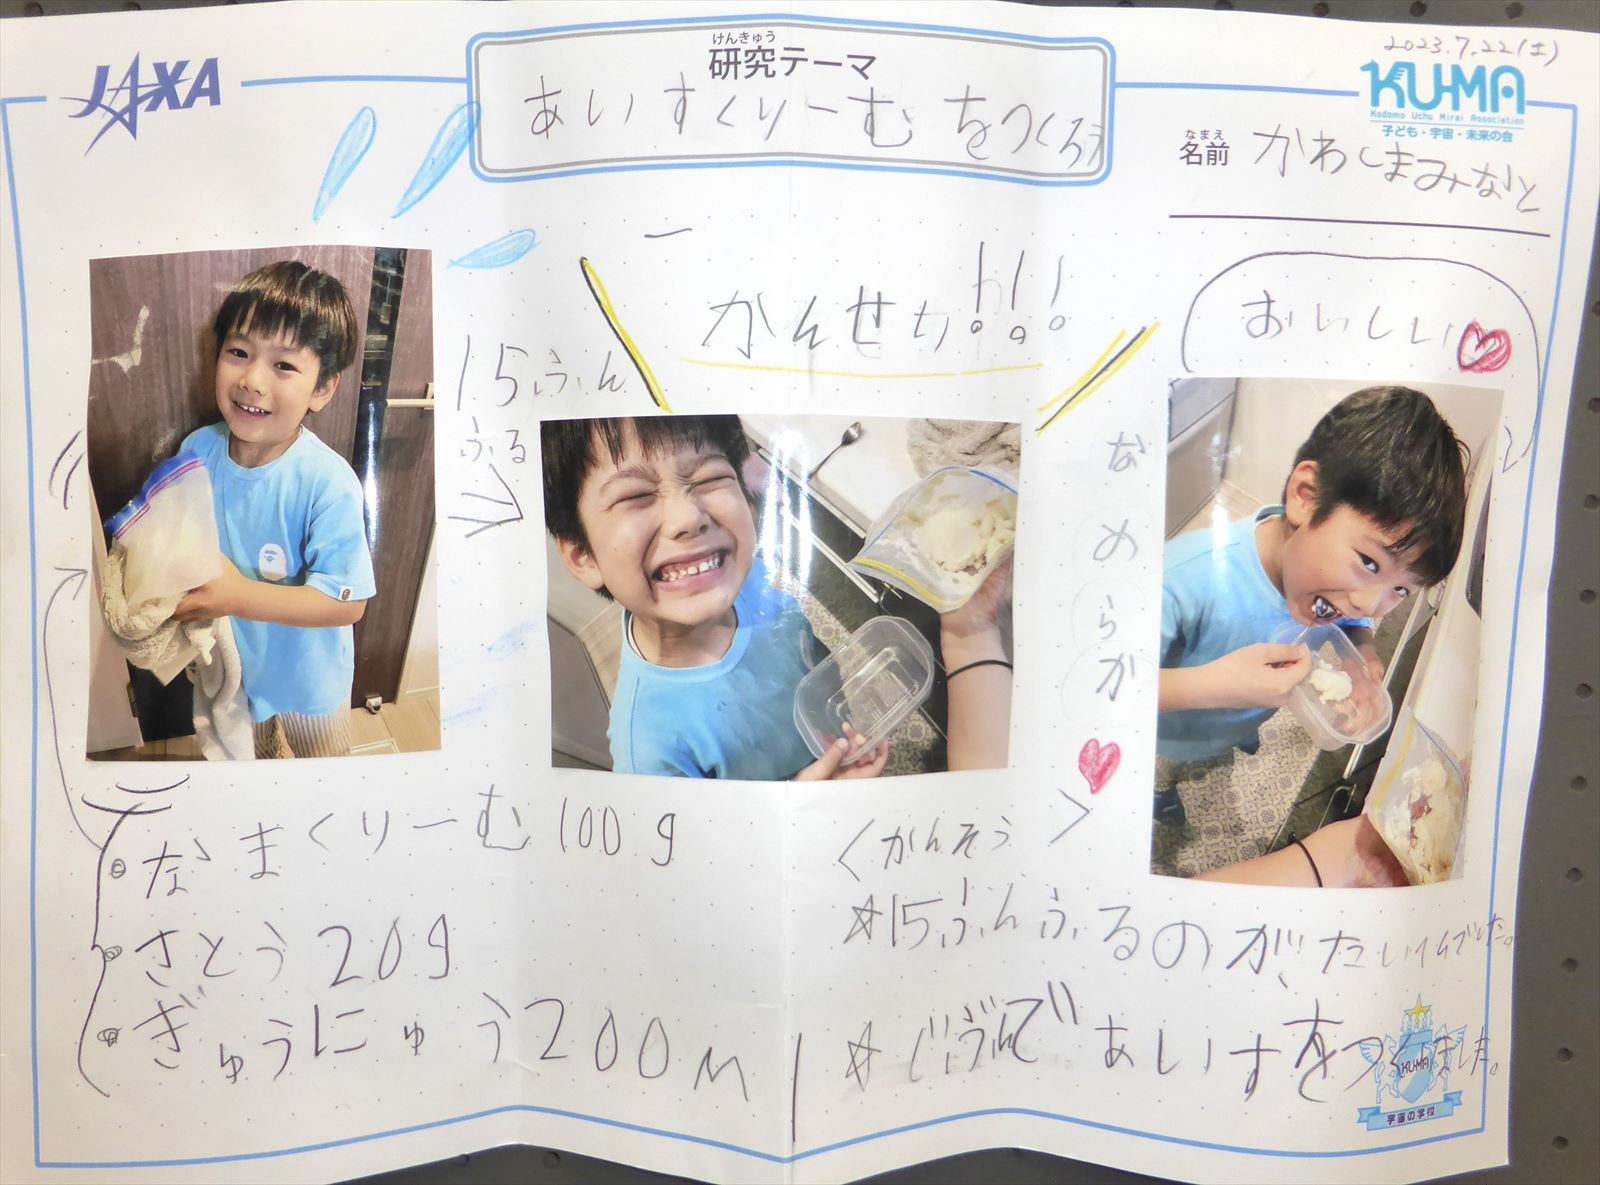 JAXA
2023.7.22(土)
KU-MA
Kodomo Uchu Mirai Association
子ども・宇宙・未来の会
けんきゅう
研究テーマ
あいすくりーむをつくろう
なまえ
名前 かわしまみなと
15ふん
ふる
かんせい!!!
おいしい
なめらか
なまくりーむ100g
さとう20g
ぎゅうにゅう200ml
<かんそう>
☆15ふんふるのがたいへんでした。
☆じぶんであいすをつくりました。
KU-MA
宇宙の学校